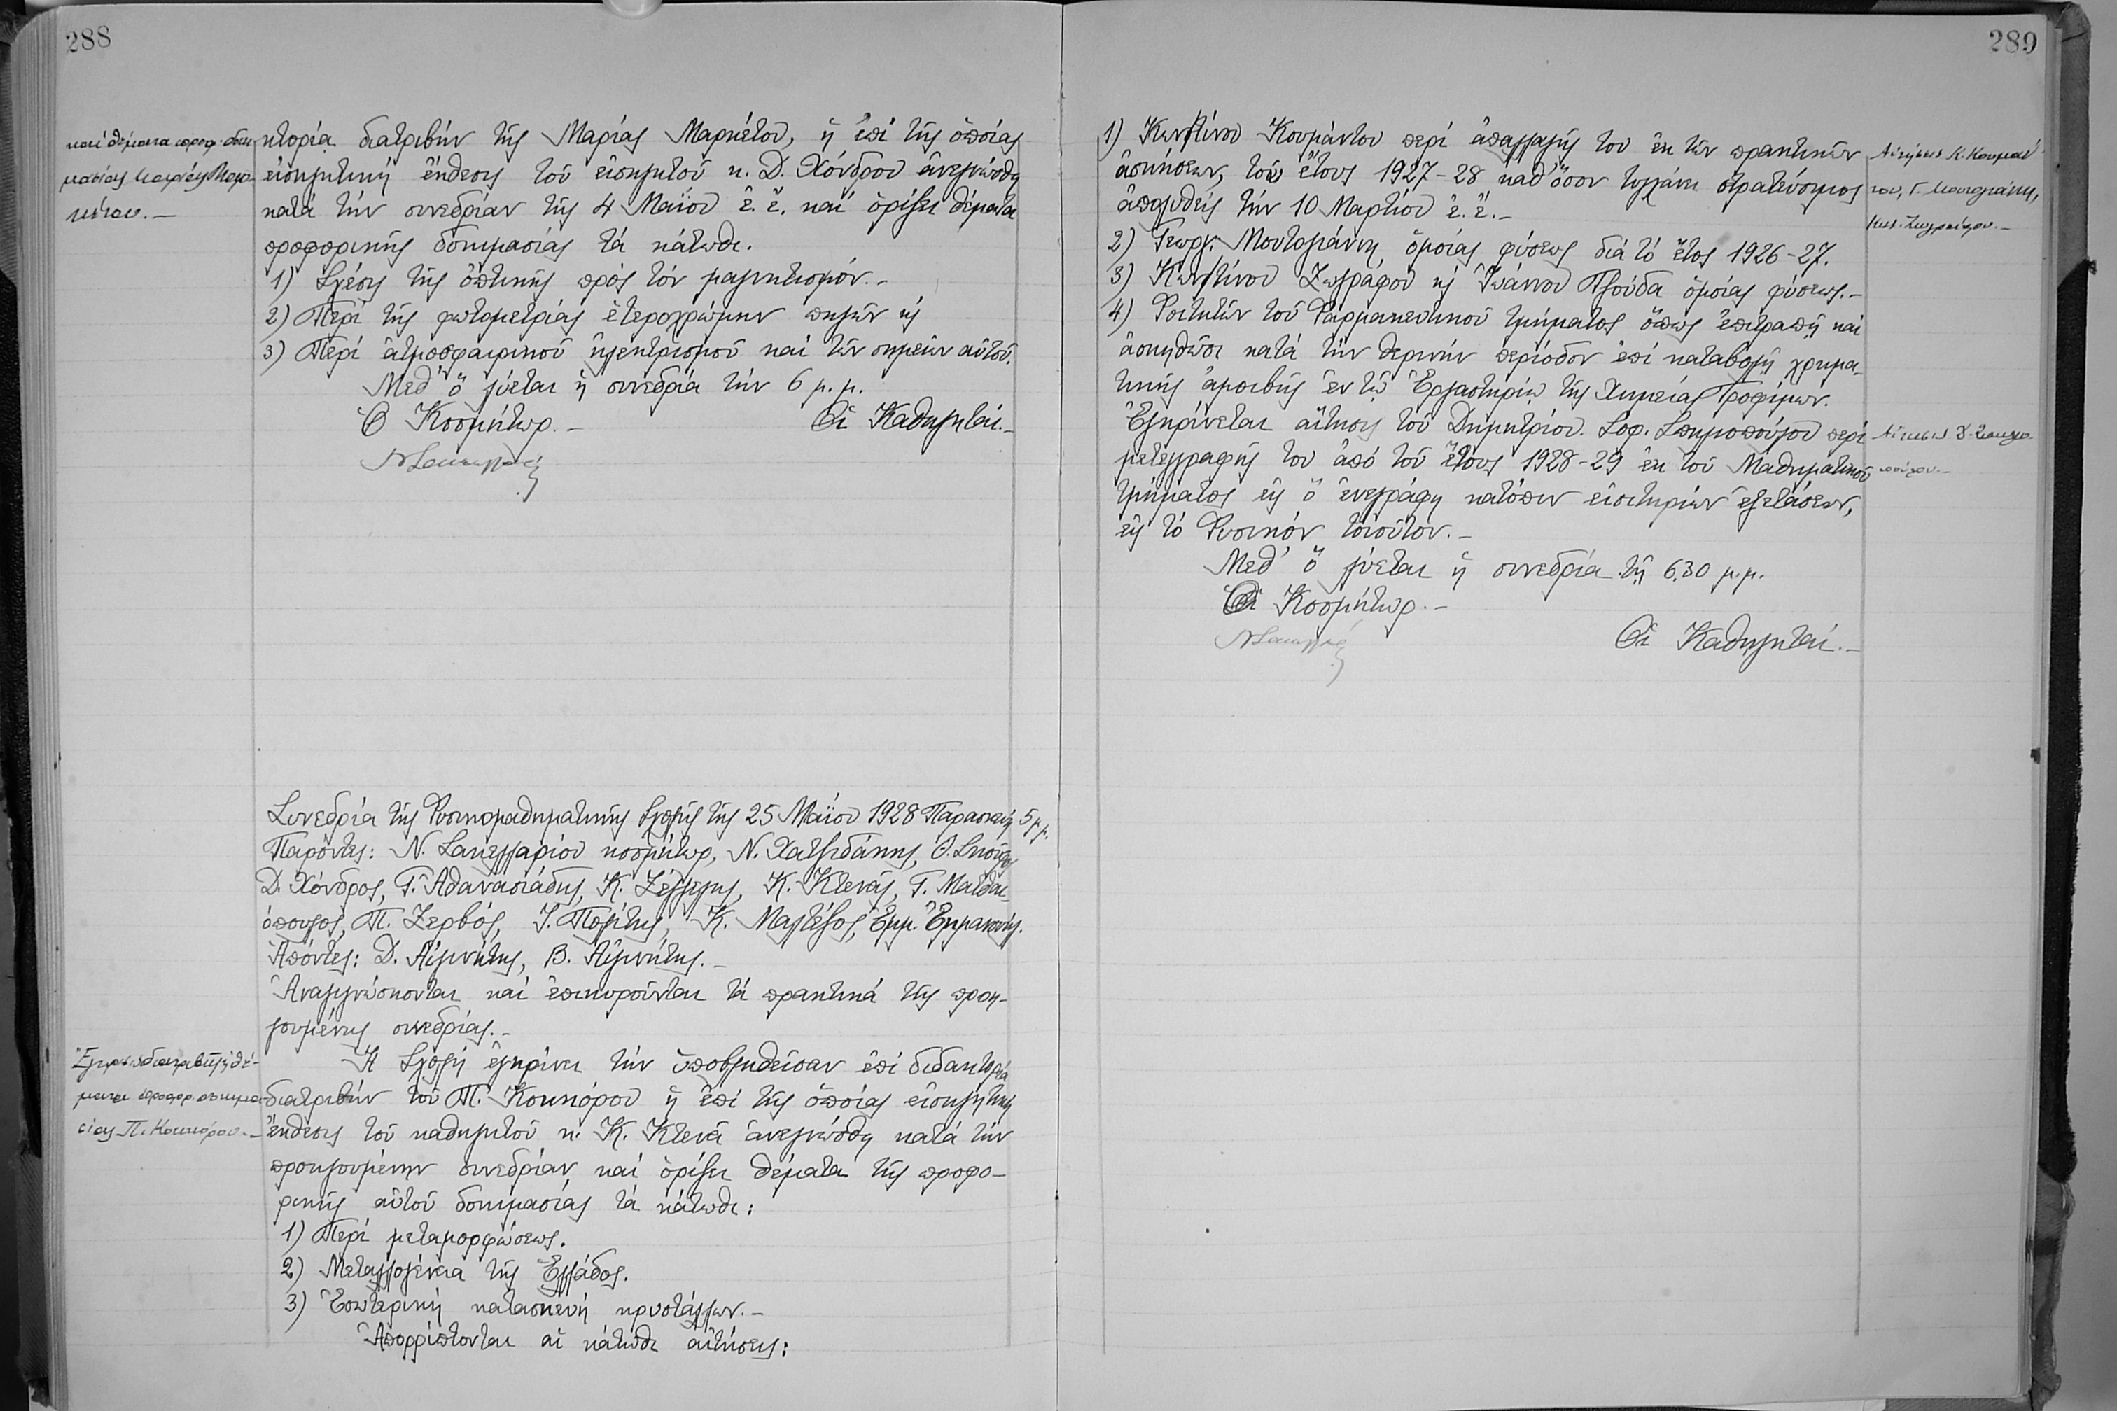 288
καὶ θέματα προφ. δοκι
μασίας Μαρίας Μαρ
κέτου.—
κτορίᾳ διατριβὴν τῆς Μαρίας Μαρκέτου, ἧ ἐπὶ τῆς ὁποίας
εἰσηγητικὴ ἔκθεσις τοῦ εἰσηγητοῦ κ. Δ. Χόνδρου ἀνεγνώσθη
κατὰ τὴν συνεδρίαν τῆς 4 Μαΐου ἐ. ἔ. καὶ ὁρίζει θέματα
προφορικῆς δοκιμασίας τὰ κάτωθι.
1) Σχέσις τῆς ὀπτικῆς πρὸς τὸν μαγνητισμόν.—
2) Περὶ τῆς φωτομετρίας ἑτεροχρώμων πηγῶν κ̀
3) Περὶ ἀτμοσφαιρικοῦ ἠλεκτρισμοῦ καὶ τῶν σημείων αὐτοῦ.
Μεθ' ὃ λύεται ἡ συνεδρία τὴν 6 μ.μ.
Ὁ Κοσμήτωρ.— Οἱ Καθηγηταί.—
Συνεδρία τῆς Φυσικομαθηματικῆς Σχολῆς τῆς 25 Μαΐου 1928 Παρασκευὴ 5 μ.μ.
Παρόντες: Ν. Σακελλαρίου κοσμήτωρ, Ν. Χατζιδάκης, Θ. Σκοῦφος
Δ. Χόνδρος, Γ. Ἀθανασιάδης, Κ. Ζέγγελης, Κ. Κτενᾶς, Γ. Ματθαι
όπουλος, Π. Ζερβός, Ἰ. Πολίτης, Κ. Μαλτέζος, Ἐμμ. Ἐμμανουήλ.
Ἀπόντες: Δ. Αἰγινήτης, Β. Αἰγινήτης.—
Ἀναγιγνώσκονται καὶ ἐπικυροῦνται τὰ πρακτικὰ τῆς προη-
γουμένης συνεδρίας.—
Ἔγκρισις διατριβῆς κ̀ θέ-
ματα προφορ. δοκιμα
σίας Π. Κοκκόρου.—
Ἡ Σχολὴ ἐγκρίνει τὴν ὑποβληθεῖσαν ἐπὶ διδακτορίᾳ
διατριβὴν τοῦ Π. Κοκκόρου ἧ ἐπὶ τῆς ὁποίας εἰσηγητικὴ
ἔκθεσις τοῦ καθηγητοῦ κ. Κ. Κτενᾶ ἀνεγνώσθη κατὰ τὴν
προηγουμένην συνεδρίαν καὶ ὁρίζει θέματα τῆς προφο-
ρικῆς αὐτοῦ δοκιμασίας τὰ κάτωθι:
1) Περὶ μεταμορφώσεως.
2) Μεταλλογένεια τῆς Ἑλλάδος.
3) Ἐσωτερικὴ κατασκευὴ κρυστάλλων.—
Ἀπορρίπτονται αἱ κάτωθι αἰτήσεις:
289
1) Κων/τίνου Κουμάντου περὶ ἀπαλλαγῆς του ἐκ τῶν πρακτικῶν
ἀσκήσεων, τοῦ ἔτους 1927-28 καθ' ὅσον τυγχάνει στρατεύσιμος
ἀπολυθεὶς τὴν 10 Μαρτίου ἐ. ἔ.—
2) Γεωργ. Μουτογιάννη ὁμοίας φύσεως διὰ τὸ ἔτος 1926-27.
3) Κων/τίνου Ζωγράφου κ̀ Ἰωάννου Τζούδα ὁμοίας φύσεως.—
4) Φοιτητῶν τοῦ Φαρμακευτικοῦ τμήματος ὅπως ἐπιτραπῇ καὶ
ἀσκηθῶσι κατὰ τὴν θερινὴν περίοδον ἐπὶ καταβολῇ χρημα-
τικῆς ἀμοιβῆς ἐν τῷ Ἐργαστηρίῳ τῆς Χημείας Τροφίμων.
Ἐγκρίνεται αἴτησις τοῦ Δημητρίου Σοφ. Σπηλιοπούλου περὶ
μετεγγραφῆς του ἀπὸ τοῦ ἔτους 1928-29 ἐκ τοῦ Μαθηματικοῦ
τμήματος εἰς ὃ ἐνεγράφη κατόπιν εἰσιτηρίων ἐξετάσεων,
εἰς τὸ Φυσικὸν τοιοῦτον.—
Μεθ' ὃ λύεται ἡ συνεδρία τῇ 6.30 μ.μ.
Κοσμήτωρ.—
Οἱ Καθηγηταί.—
Αἰτήσεις Κ. Κουμάν
του, Γ. Μουτογιάννη,
Κων. Ζωγράφου.—